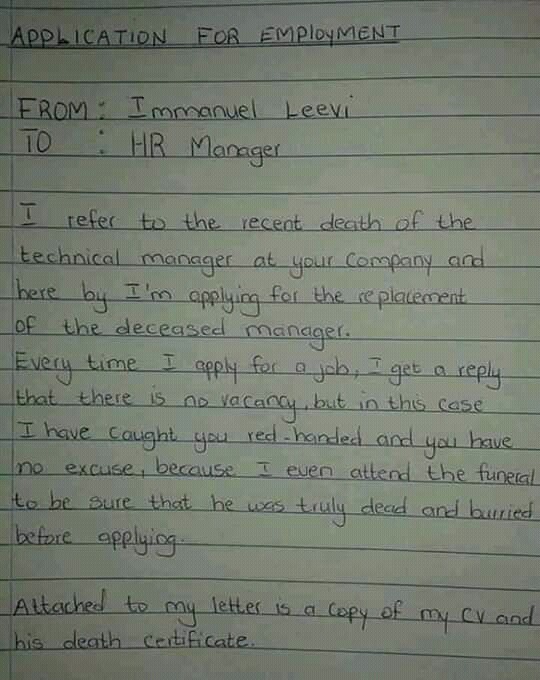 APPLICATION FOR EMPLOYMENT
FROM: Immanuel Leevi
TO : HR Manager
I refer to the recent death of the
technical manager at your Company and
here by I'm applying for the replacement
of the deceased manager.
Every time I apply for a job, I get a reply
that there is no vacancy, but in this case
I have caught you red-handed and you have
no excuse, because I even attend the funeral
to be sure that he was truly dead and burried
before applying.
Attached to my letter is a copy of my CV and
his death certificate.